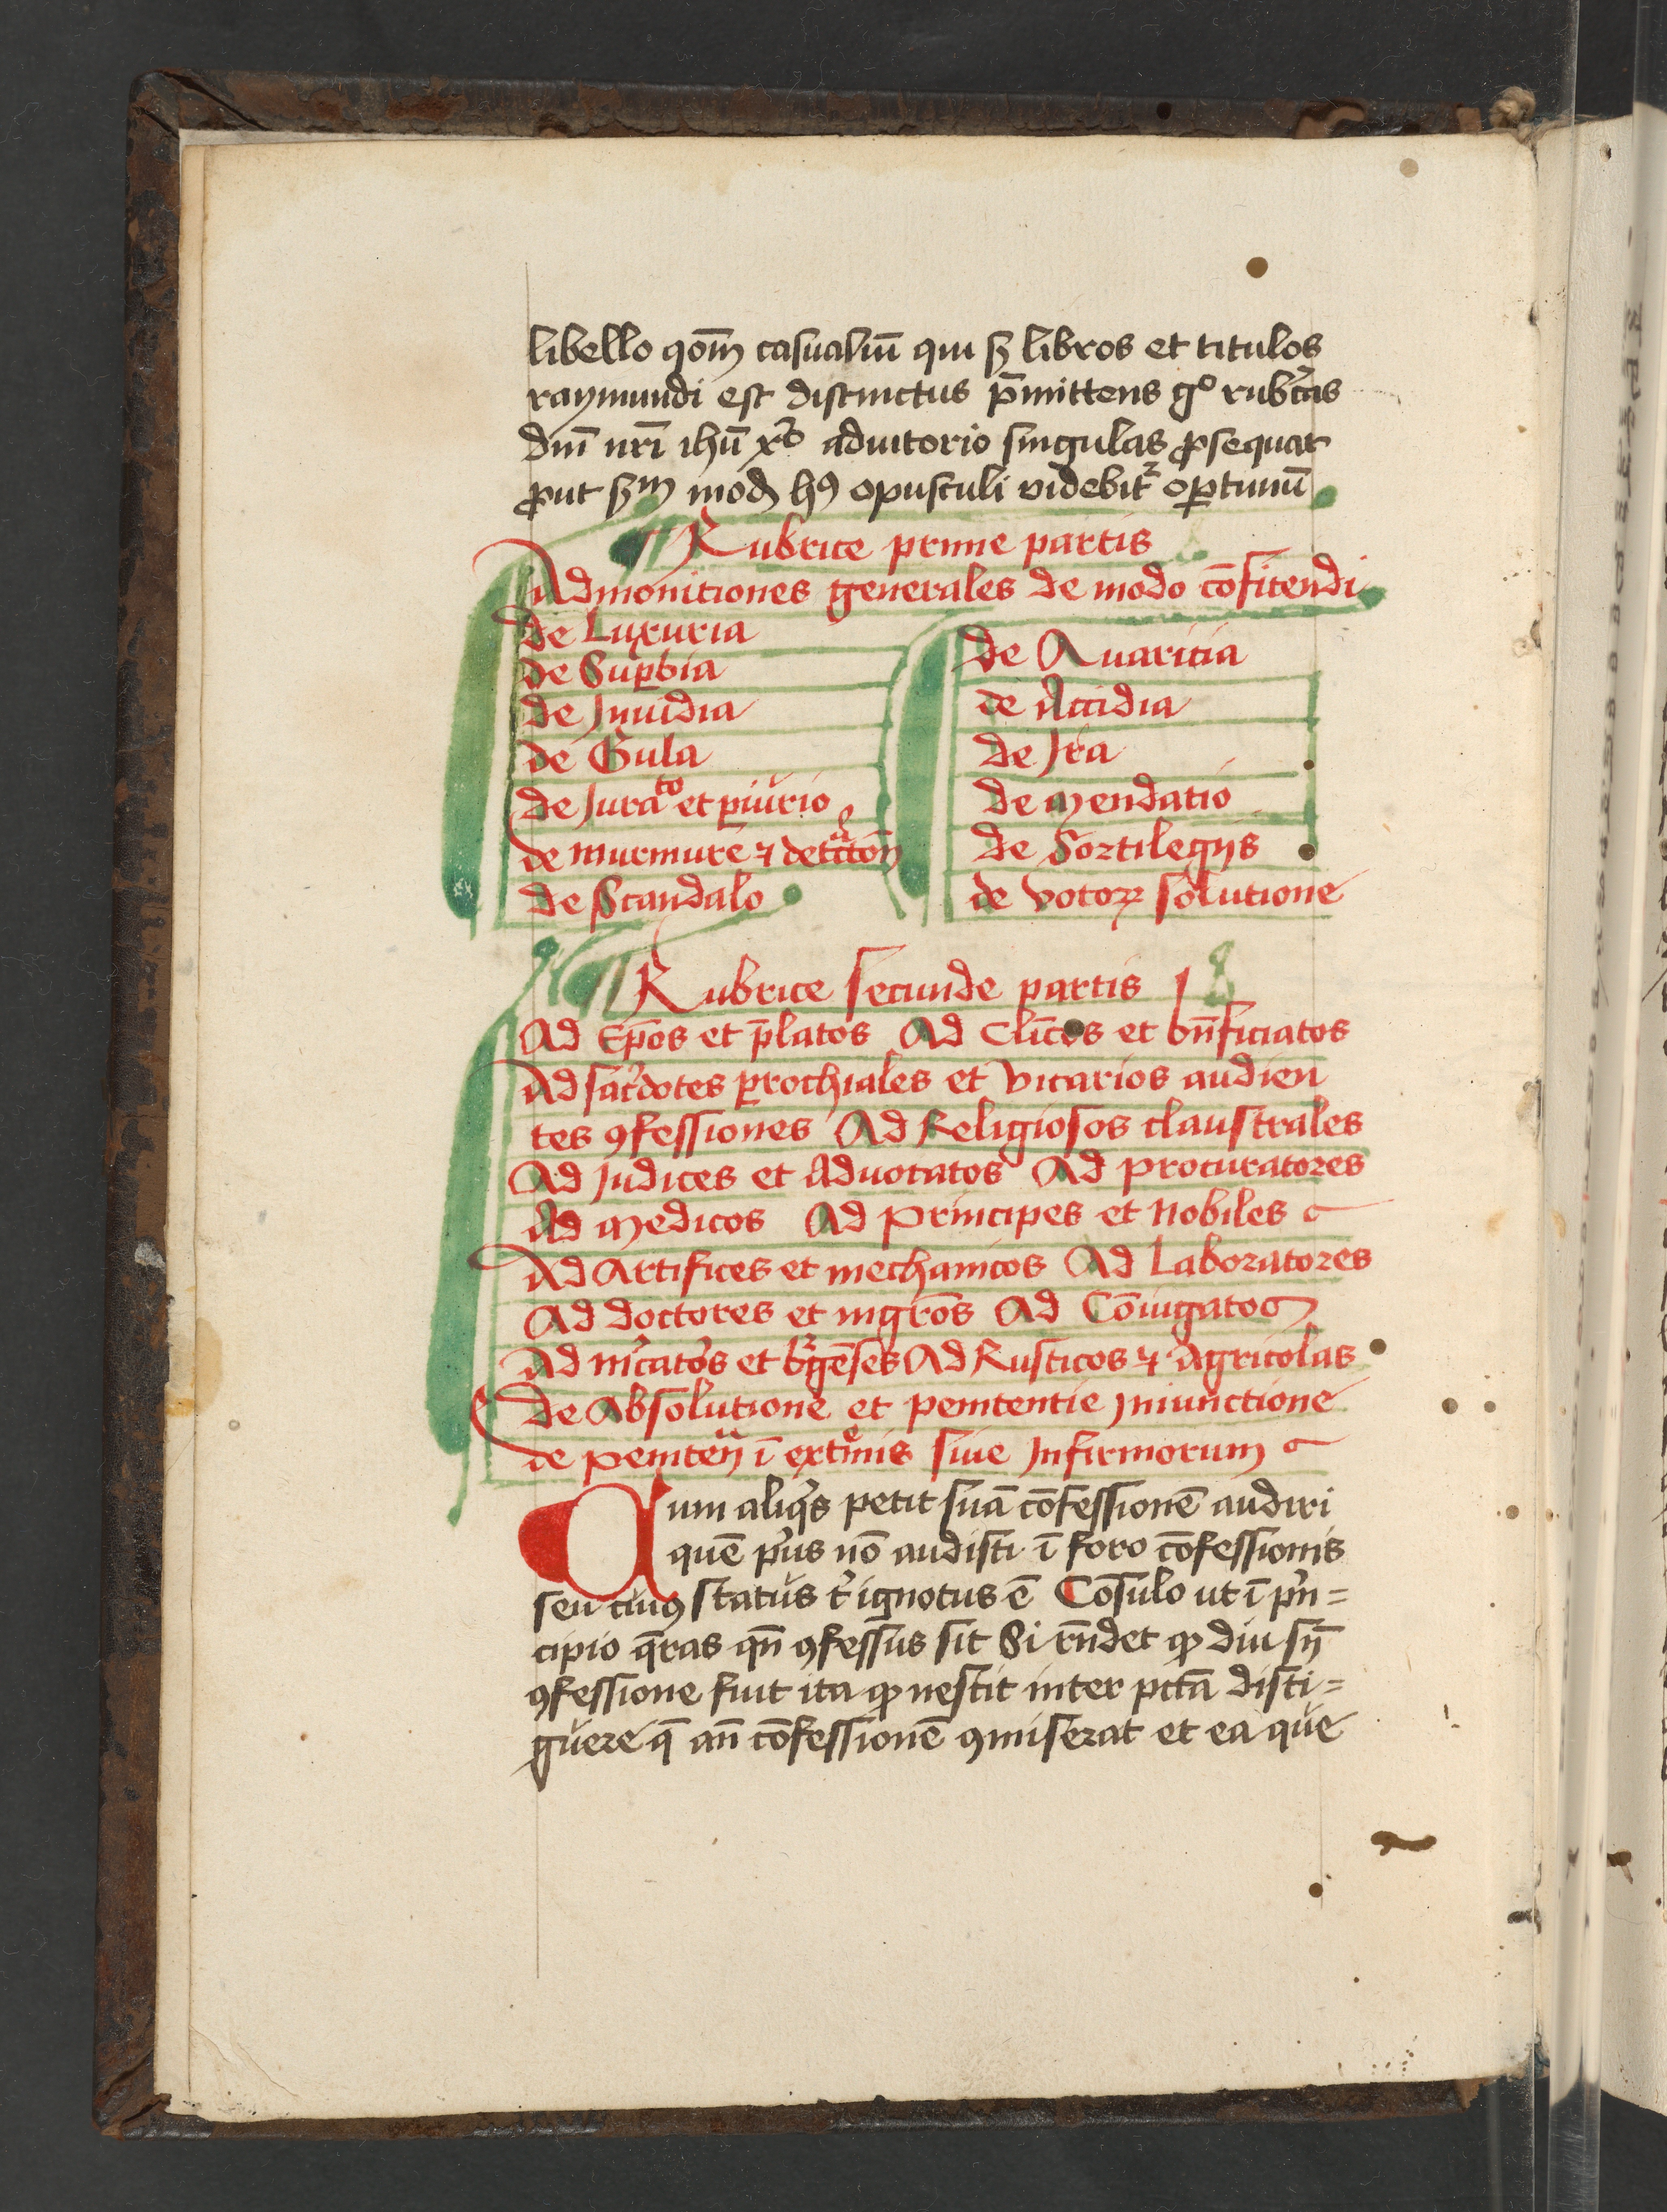 libello qōm casualiū qui ẜ libros et titulos
raymundi est distinctus p̄mittens gͦ rubͨas
dm̄ nr̄i ihū xͥ adiutorio singulas ꝓsequar
ꝓut ẜm modū hꝰ opusculi videbit᷑ opꝑtunū
¶ Rubrice prime partis
Admonitiones generales de modo cōfitendi
de Luxuria
de Suꝑbia
de Jnuidia
de Gula
de Juraᵗᵒ et ꝑiurio
de murmure ⁊ detᵃctōn
de Scandalo
de Auaricia
de Accidia
de Jra
de mendatio
de Sortilegijs
de votoꝝ solutione
¶ Rubrice secunde partis
Ad Ep̄os et p̄latos Ad Cli̅cos et bn̄ficiatos
Ad sac̾dotes ꝑrochiales et vicarios audien
tes ꝯfessiones Ad Religiosos claustrales
Ad Judices et Aduocatos Ad procuratores
Ad medicos Ad principes et Nobiles
Ad Artifices et mechanicos Ad Laboratores
Ad doctores et mgr̄os Ad Cōiugatos
Ad m̾cato̾s et b᷑gēses Ad Rusticos ⁊ Agricolas
de Absolutione et penitentie Jniunctione
de peniten̄ ī extͤmis siue Jnfirmorum
Cum aliqͥs petit suā cōfessionē audiri
quē pͥus nō audisti ī foro cōfessionis
seu cuiꝰ status t̾ ignotus ē Cōsulo ut ī pͥn=
cipio q̄ras qn̄ ꝯfessus sit Si rn̄det ꝙ diu sn̄
ꝯfessione fuit ita ꝙ nescit inter pctā disti=
guere q̄ an̄ cōfessionē ꝯmiserat et ea que